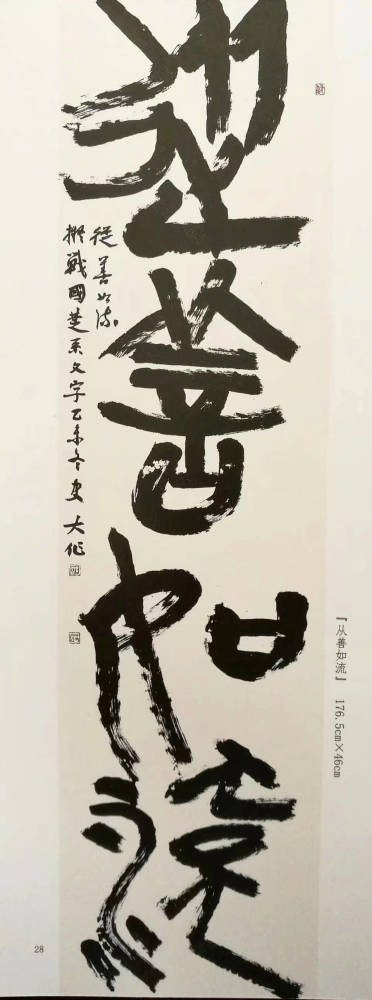 從善如流
從善如流
擬戰國楚系文字乙未冬史大作
『从善如流』 176.5cm×46cm
28